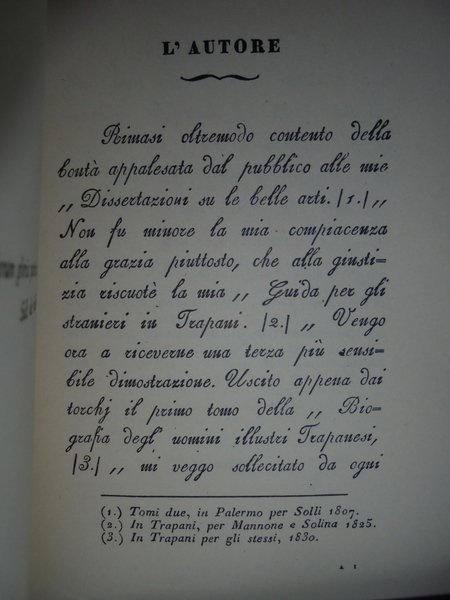 L' AUTORE
Rimasi oltremodo contento della
bontà appalesata dal pubblico alle mie
,, Dissertazioni su le belle arti. |1.| ,,
Non fu minore la mia compiacenza
alla grazia piuttosto, che alla giusti-
zia riscuotè la mia ,, Guida per gli
stranieri in Trapani. |2.| ,, Vengo
ora a riceverne una terza più sensi-
bile dimostrazione. Uscito appena dai
torchj il primo tomo della ,, Bio-
grafia degl' uomini illustri Trapanesi,
|3.| ,, mi veggo sollecitato da ogni
(1.) Tomi due, in Palermo per Solli 1807.
(2.) In Trapani, per Mannone e Solina 1825.
(3.) In Trapani per gli stessi, 1830.
A I